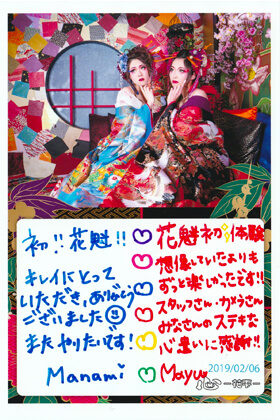 初!!花魁!!
キレイにとって
いただき、ありがとう
ございました
またやりたいです!
Manami
花魁初体験
想像していたよりも
ずっと楽しかったです!!
スタッフさん・カメラさん
みなさんのステキな
心遣いに感謝!!
Mayu
2019/02/06